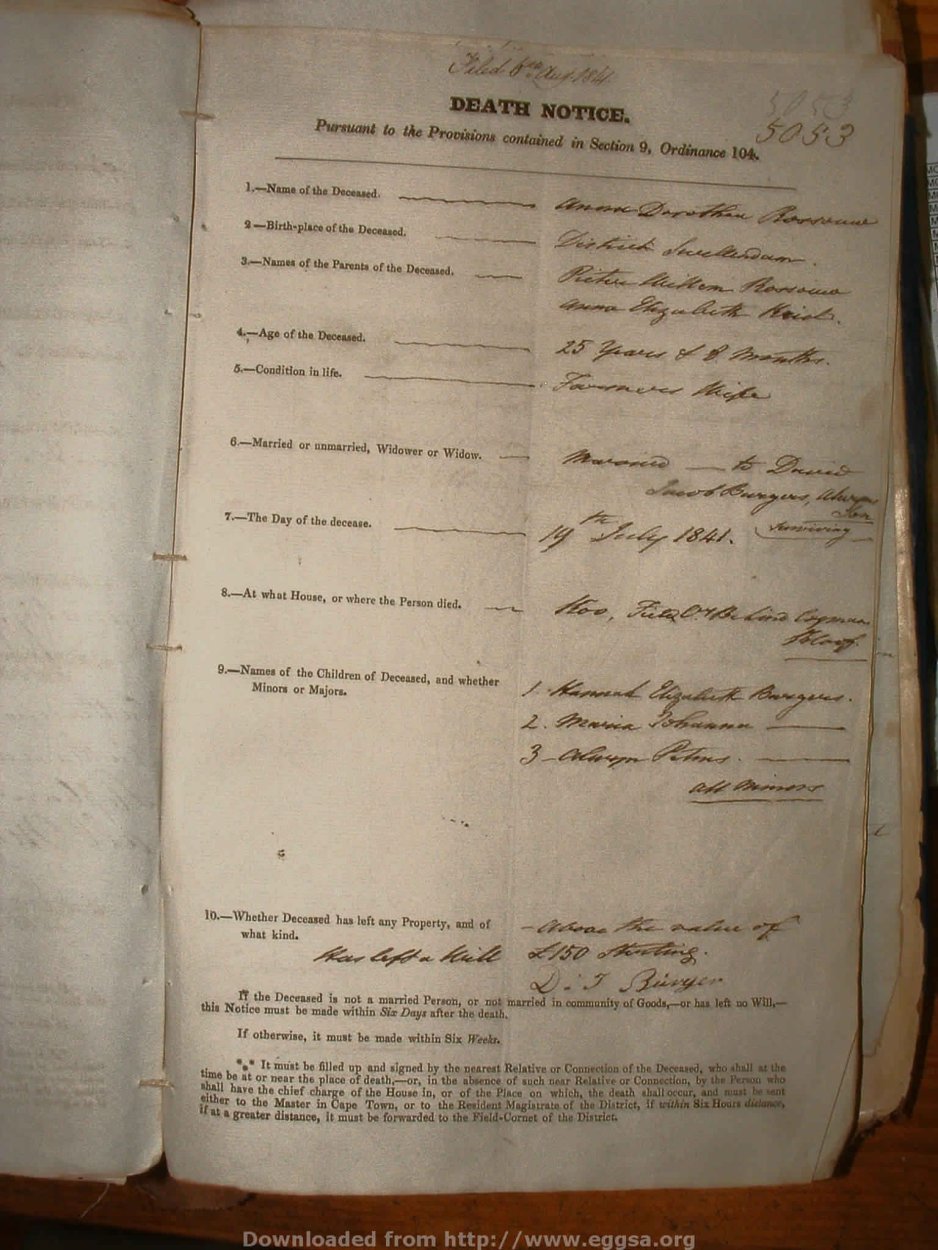 Filed 6th Aug 1841
5053
DEATH NOTICE.
5053
Pursuant to the Provisions contained in Section 9, Ordinance 104.
1.—Name of the Deceased. Anna Dorothea Rossouw
2—Birth-place of the Deceased. District Swellendam.
3.—Names of the Parents of the Deceased. Pieter Willem Rossouw
Anna Elizabeth
4.—Age of the Deceased. 25 Years & 8 Months.
5.—Condition in life. Farmers Wife
6.—Married or unmarried, Widower or Widow. Married — to David
Jacob Burgers, Alwyn
Son
surviving
7.—The Day of the decease. 19th July 1841.
8.—At what House, or where the Person died. Koo, Field Ct Behind Cogmans
Kloof.
9.—Names of the Children of Deceased, and whether
Minors or Majors.
1. Hannah Elizabeth Burgers.
2. Maria Johanna —
3 - Alwyn Petrus. —
All Minors
10.—Whether Deceased has left any Property, and of
what kind.
- Above the value of
Has left a Will £150 Sterling.
D. J Burger
If the Deceased is not a married Person, or not married in community of Goods,—or has left no Will,—
this Notice must be made within Six Days after the death.
If otherwise, it must be made within Six Weeks.
*** It must be filled up and signed by the nearest Relative or Connection of the Deceased, who shall at the
time be at or near the place of death,—or, in the absence of such near Relative or Connection, by the Person who
shall have the chief charge of the House in, or of the Place on which, the death shall occur, and must be sent
either to the Master in Cape Town, or to the Resident Magistrate of the District, if within Six Hours distance,
if at a greater distance, it must be forwarded to the Field-Cornet of the District.
Downloaded from http://www.eggsa.org